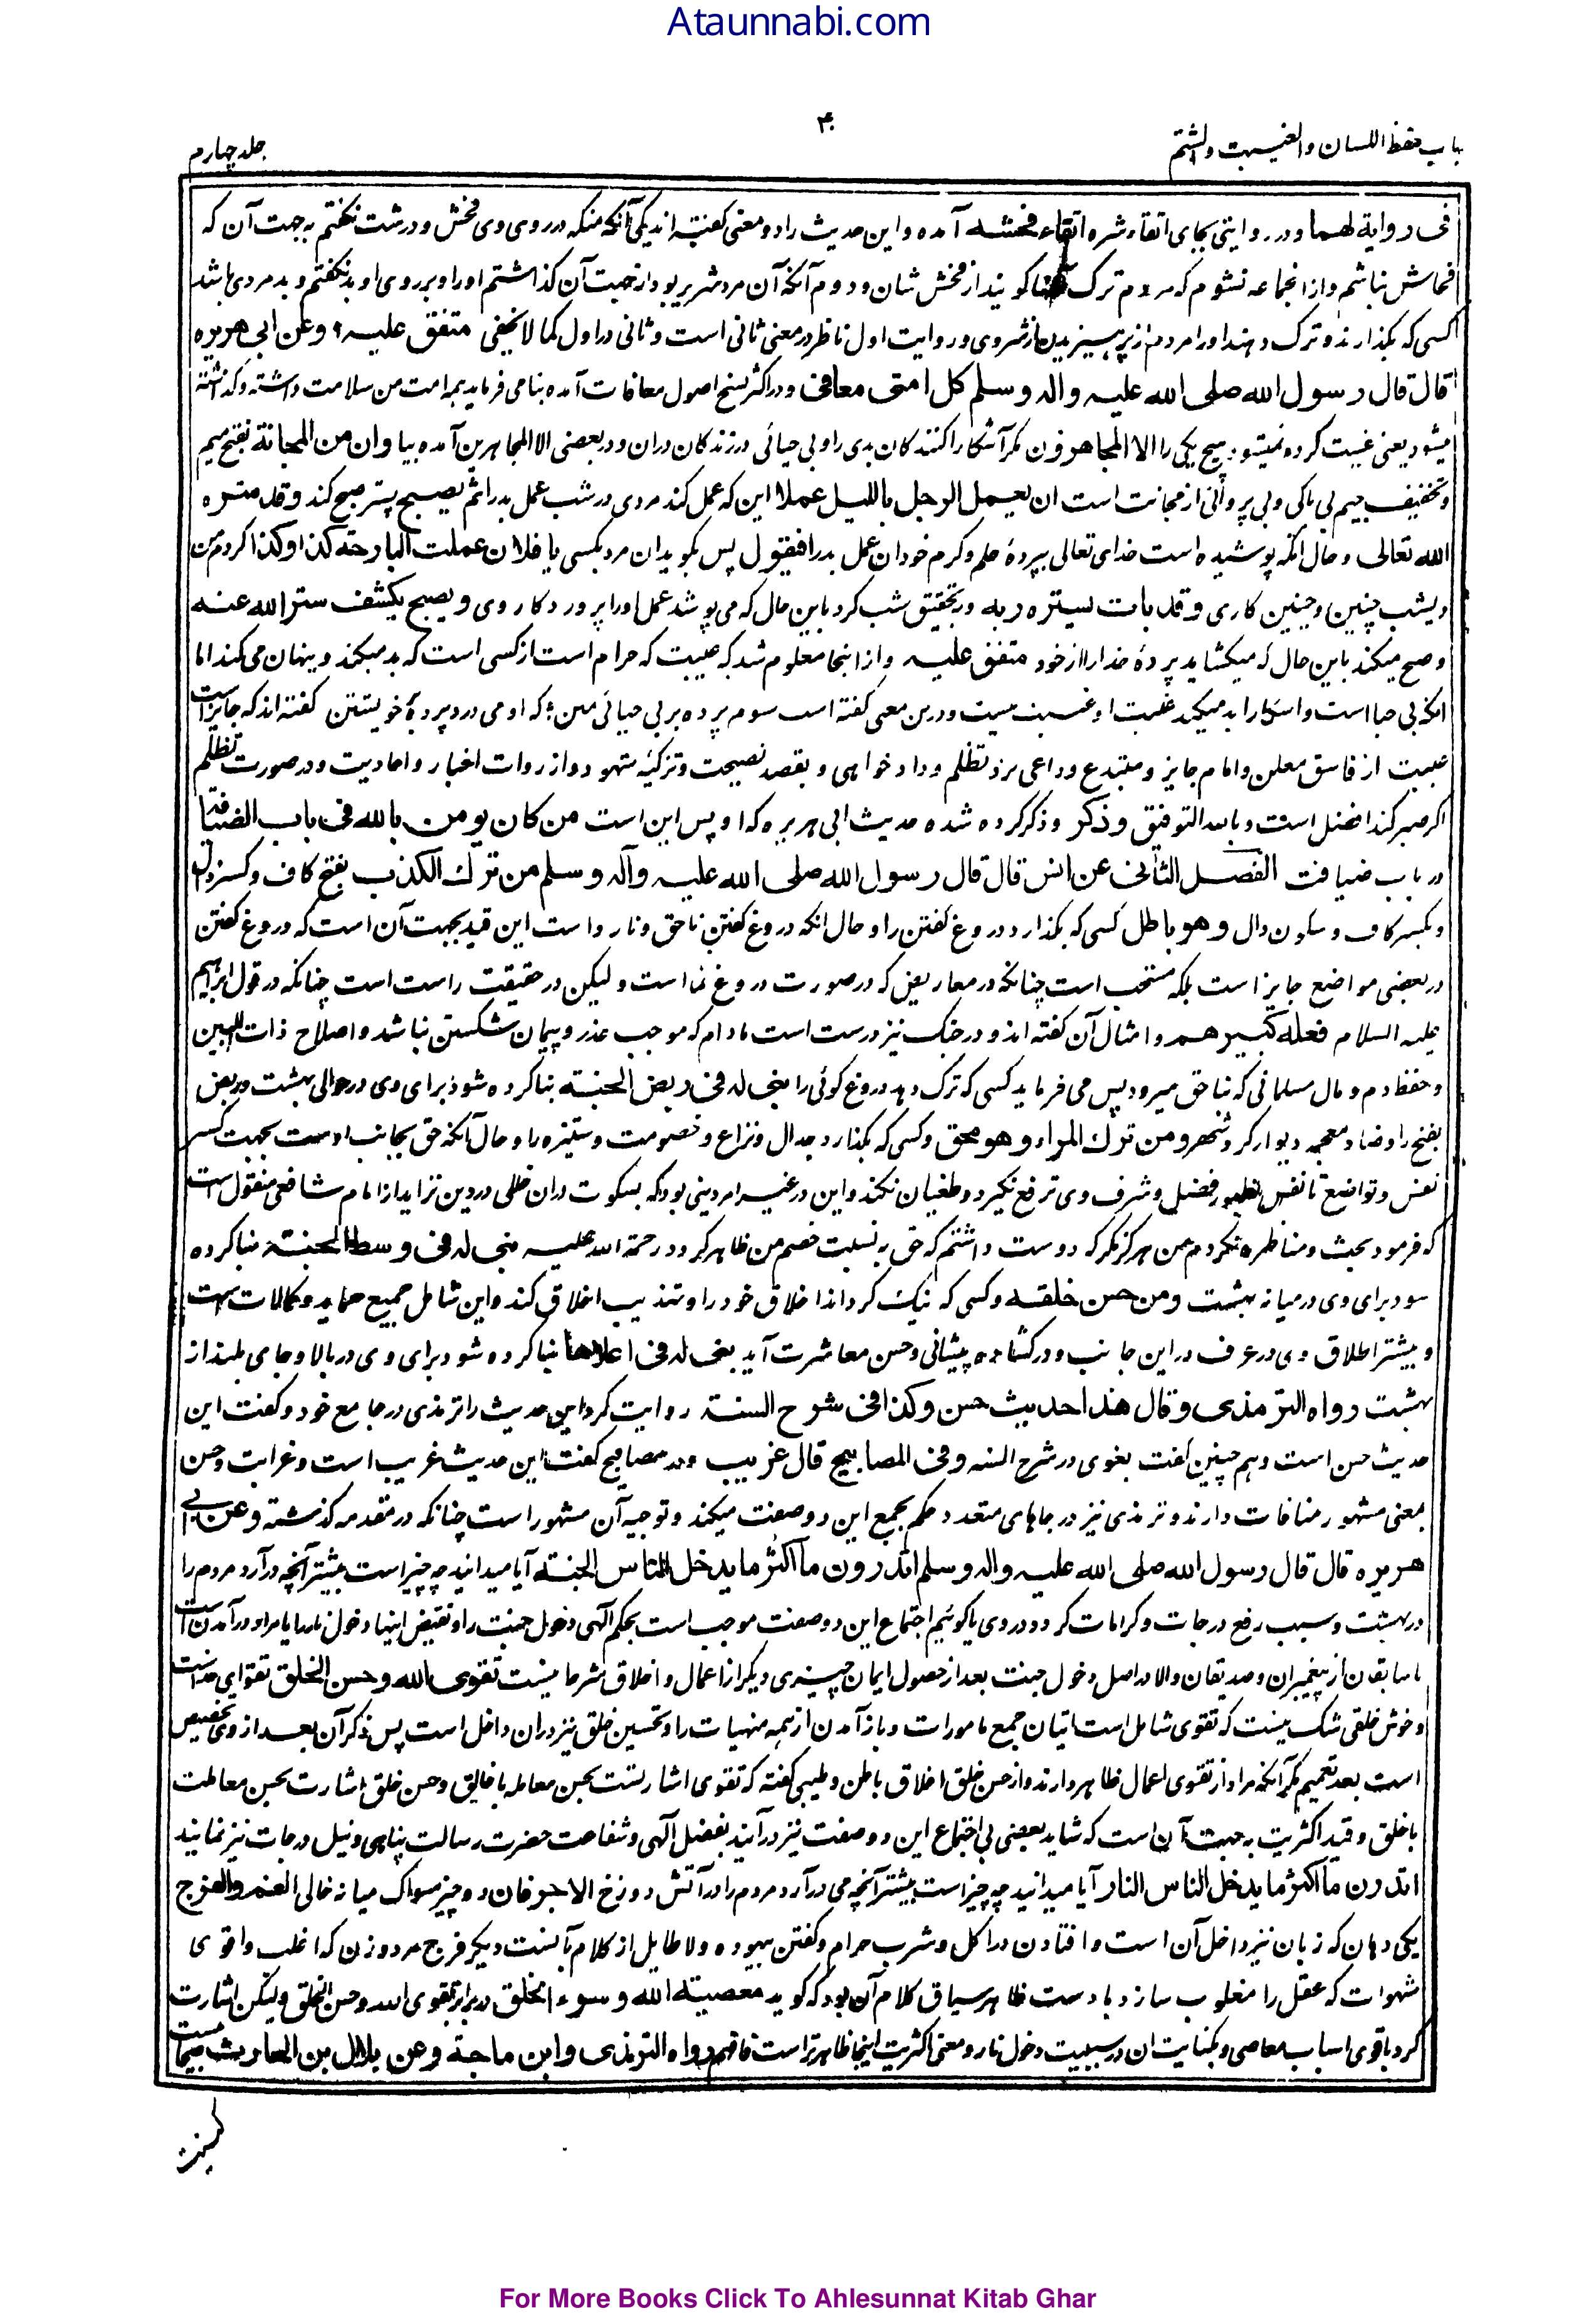 Ataunnabi.com
باب حفظ اللسان والغیبت والشتم
۴
جلد چهارم
فی روایة لهما و در روایتی بجای اتقاء شره اتقاء فحشه آمده و این حدیث را دو معنی گفته اند یکی آنکه من که در روی وی فحش و درشت نگفتم به جهت آن که
فحاش نباشم و ازان جماعه نشوم که مردم ترک کنند از فحش شان و دوم آنکه آن مرد شریر بود از جهت آن گذاشتم او را و بر روی او بد نگفتم و بد مردی باشد
کسی که بگذارند و ترک دهند او را مردم از پرهیز بدن از شر وی و روایت اول ناظر در معنی ثانی است و ثانی در اول کما لا یخفی متفق علیه وعن ابی هریره
قال قال رسول الله صلی الله علیه واله وسلم کل امتی معافی و در اکثر نسخ اصول معافات آمده بنا می فرماید همه امت من سلامت داشته و گذاشته
میشود یعنی غیبت کرده نمیشود هیچ یکی را الا المجاهرون مگر آشکارا کنندگان بدی را و بی حیائی ورزندگان دران و در بعضی الا المجاهرین آمده بیا وان من المجانة بفتح میم
و تخفیف جیم بی باکی و بی پروائی از مجانت است ان یعمل الرجل باللیل عملا این که عمل کند مردی در شب عمل بد را ثم یصبح پستر صبح کند وقد ستره
الله تعالی و حال آنکه پوشیده است خدای تعالی بپردۀ حلم و کرم خود آن عمل بد را فیقول پس بگوید آن مرد بکسی یا فلان عملت البارحة کذا وکذا کردم من
دیشب چنین و چنین کاری وقد بات یستره ربه و بتحقیق شب کرد باین حال که می پوشد عمل او را پروردگار وی ویصبح یکشف ستر الله عنه
و صبح میکند باین حال که میکشاید پردۀ خدا را از خود متفق علیه و ازاینجا معلوم شد که غیبت که حرام است از کسی است که بد میکند و پنهان می کند اما
آنکه بی حیا است و آشکارا بد میکند غیبت او غیبت نیست و درین معنی گفته است سوم پرده بر بی حیائی متن که او می درد پردۀ خویشتن گفته اند که جایز است
غیبت از فاسق معلن و امام جایر و مبتدع و داعی نزد تظلم و دادخواهی و بقصد نصیحت و تزکیۀ شهود و از روات اخبار و احادیث و در صورت تظلم
اگر صبر کند افضل است و بالله التوفیق وذکر و ذکر کرده شده حدیث ابی هریره که او پس این است من کان یومن بالله فی باب الضیافة
در باب ضیافت الفصل الثانی عن انس قال قال رسول الله صلی الله علیه وآله وسلم من ترک الکذب بفتح کاف و کسر ذال
و بکسر کاف و سکون دال وهو باطل کسی که بگذارد دروغ گفتن را و حال آنکه دروغ گفتن ناحق و نارواست این قید بجهت آن است که دروغ گفتن
در بعضی مواضع جایز است بلکه مستحب است چنانکه در معاریض که در صورت دروغ نما است و لیکن در حقیقت راست است چنانکه در قول ابراهیم
علیه السلام فعله کبیرهم و امثال آن گفته اند و در جنگ نیز درست است مادام که موجب غدر و پیمان شکستن نباشد و اصلاح ذات البین
و حفظ دم و مال مسلمانی که بناحق میرود پس می فرماید کسی که ترک دهد دروغ گوئی را بنی له فی ربض الجنة بنا کرده شود برای وی در حوالی بهشت و ربض
بفتح را و ضاد معجمه دیوار گرد شهر ومن ترک المراء وهو محق و کسی که بگذارد جدال و نزاع و خصومت و ستیزه را و حال آنکه حق بجانب اوست بجهت کسر
نفس و تواضع تا نفس بر فضل و شرف وی ترفع نگیرد و طغیان نکند و این در غیر امر دینی بود که بسکوت دران خللی در دین نزاید از امام شافعی منقول است
که فرمود بحث و مناظره نکردم من هرگز مگر که دوست داشتم که حق به نسبت خصم من ظاهر گردد رحمة الله علیه بنی له فی وسط الجنة بنا کرده
شود برای وی در میانه بهشت ومن حسن خلقه و کسی که نیک گرداند اخلاق خود را و تهذیب اخلاق کند و این شامل جمیع محامد و کمالات است
و بیشتر اطلاق وی در عرف در این جانب و در کشاده پیشانی و حسن معاشرت آید بنی له فی اعلاها بنا کرده شود برای وی در بالا و جای بلند از
بهشت رواه الترمذی وقال هذا حدیث حسن وکذا فی شرح السنة روایت کرد این حدیث را ترمذی در جامع خود و گفت این
حدیث حسن است و هم چنین گفت بغوی در شرح السنه وفی المصابیح قال غریب و در مصابیح گفت این حدیث غریب است و غرابت و حسن
بمعنی مشهور منافات دارند و ترمذی نیز در جاهای متعدد حکم بجمع این دو صفت میکند و توجیه آن مشهور است چنانکه در مقدمه گذشته وعن ابی
هریره قال قال رسول الله صلی الله علیه واله وسلم اتدرون ما اکثر ما یدخل الناس الجنة آیا میدانید چه چیز است بیشتر آنچه درآرد مردم را
در بهشت و سبب رفع درجات و کرامات گردد در وی یا گوئیم اجتماع این دو صفت موجب است بحکم الهی دخول جنت را و نقیض اینها دخول نار را یا مراد درآمدن است
با سابقان از پیغمبران و صدیقان والا در اصل دخول جنت بعد از حصول ایمان چیزی دیگر از اعمال و اخلاق شرط نیست تقوی الله وحسن الخلق تقوای خداست
و خوش خلقی شک نیست که تقوی شامل است اتیان جمیع مامورات و باز آمدن از همه منهیات را و تحسین خلق نیز دران داخل است پس ذکر آن بعد از وی تخصیص
است بعد تعمیم مگر آنکه مراد از تقوی اعمال ظاهر دارند و از حسن خلق اخلاق باطن و طیبی گفته که تقوی اشارتست بحسن معامله با خالق و حسن خلق اشارت بحسن معاملت
با خلق و قید اکثریت به جهت آن است که شاید بعضی بی اجتماع این دو صفت نیز درآیند بفضل الهی و شفاعت حضرت رسالت پناهی و نیل درجات نیز نمایند
اتدرون ما اکثر ما یدخل الناس النار آیا میدانید چه چیز است بیشتر آنچه می درآرد مردم را در آتش دوزخ الاجوفان دو چیز سواک میانه خالی الفم والفرج
یکی دهان که زبان نیز داخل آن است و افتادن در اکل و شرب حرام و گفتن بیهوده و لاطایل از کلام بآنست دیگر فرج مرد و زن که اغلب و اقوی
شهوات که عقل را مغلوب سازد با دست ظاهر سیاق کلام آن بود که گوید معصیة الله وسوء الخلق در برابر تقوی الله وحسن الخلق ولیکن اشارت
کرد باقوی اسباب معاصی و بکنایت ان در سببیت دخول نار و معنی اکثریت اینجا ظاهرتر است فافهم رواه الترمذی وابن ماجة وعن بلال بن الحارث صحابی
است
For More Books Click To Ahlesunnat Kitab Ghar